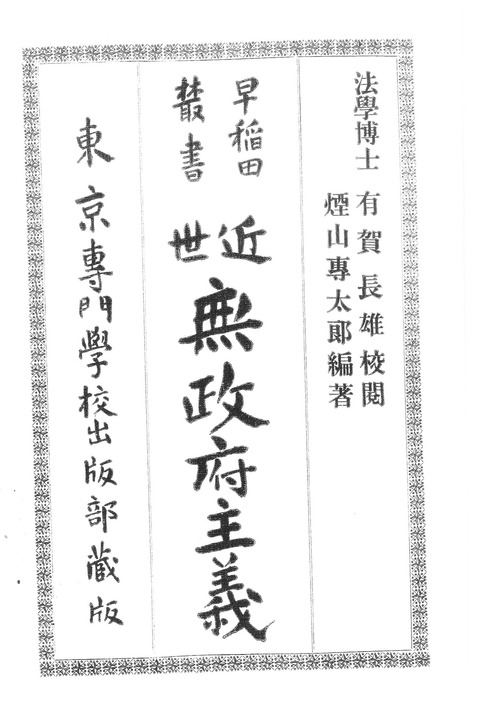 法學博士 有賀長雄校閲
煙山專太郞編著
早稻田
叢書
近世
無政府主義
東京專門學校出版部藏版